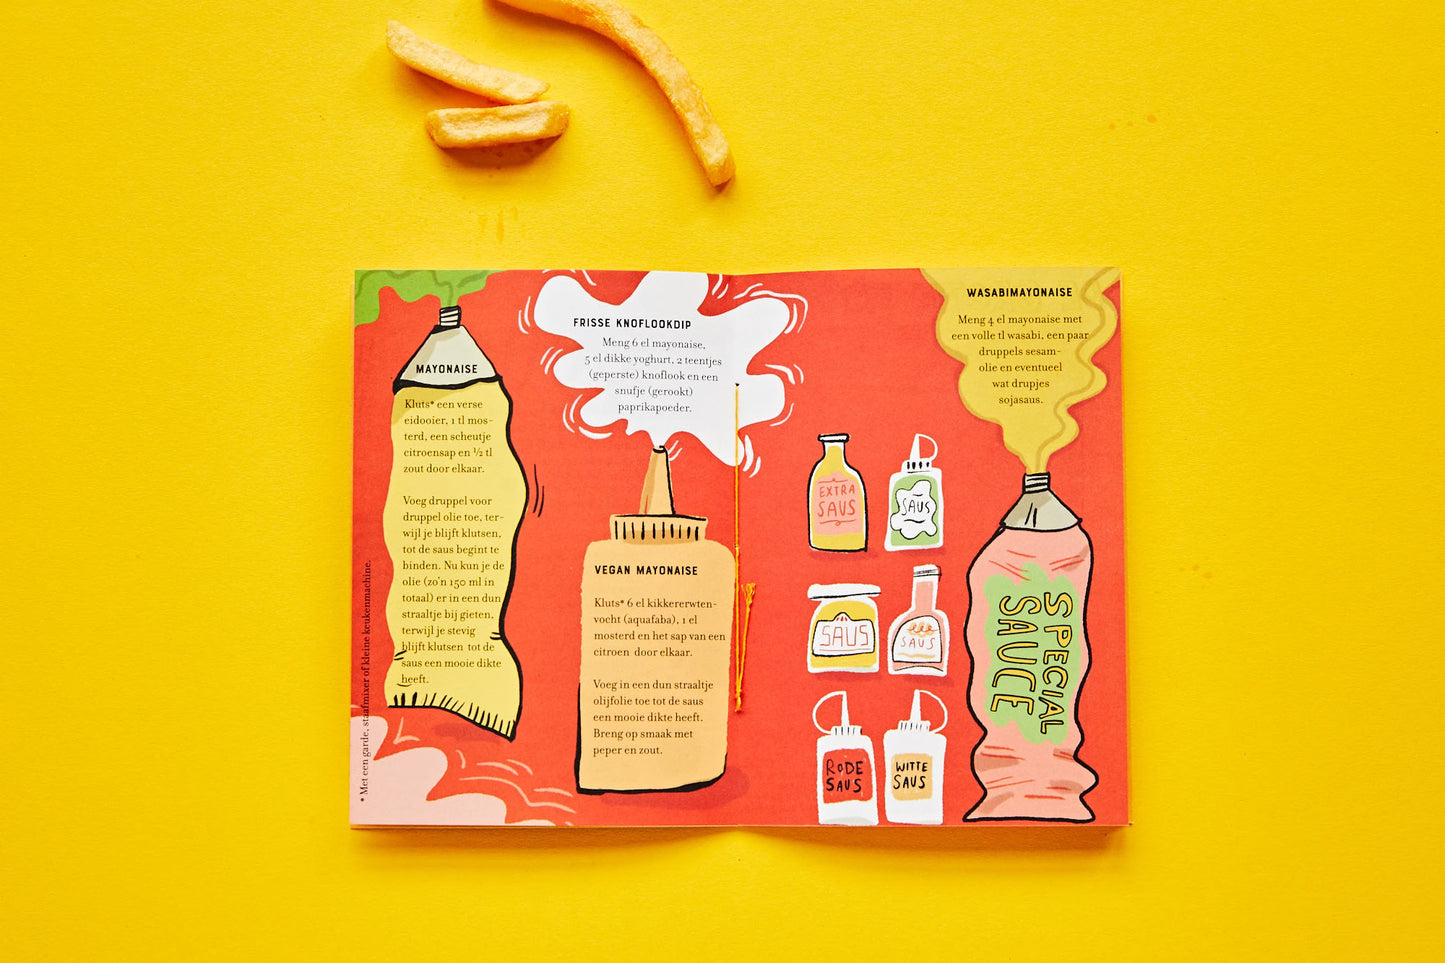 MAYONAISE
Kluts* een verse
eidooier, 1 tl mos-
terd, een scheutje
citroensap en ½ tl
zout door elkaar.
Voeg druppel voor
druppel olie toe, ter-
wijl je blijft klutsen,
tot de saus begint te
binden. Nu kun je de
olie (zo'n 150 ml in
totaal) er in een dun
straaltje bij gieten,
terwijl je stevig
blijft klutsen tot de
saus een mooie dikte
heeft.
* Met een garde, staafmixer of kleine keukenmachine.
FRISSE KNOFLOOKDIP
Meng 6 el mayonaise,
5 el dikke yoghurt, 2 teentjes
(geperste) knoflook en een
snufje (gerookt)
paprikapoeder.
VEGAN MAYONAISE
Kluts* 6 el kikkererwten-
vocht (aquafaba), 1 el
mosterd en het sap van een
citroen door elkaar.
Voeg in een dun straaltje
olijfolie toe tot de saus
een mooie dikte heeft.
Breng op smaak met
peper en zout.
WASABIMAYONAISE
Meng 4 el mayonaise met
een volle tl wasabi, een paar
druppels sesam-
olie en eventueel
wat drupjes
sojasaus.
EXTRA
SAUS
SAUS
SAUS
SAUS
RODE
SAUS
WITTE
SAUS
SPECIAL
SAUCE